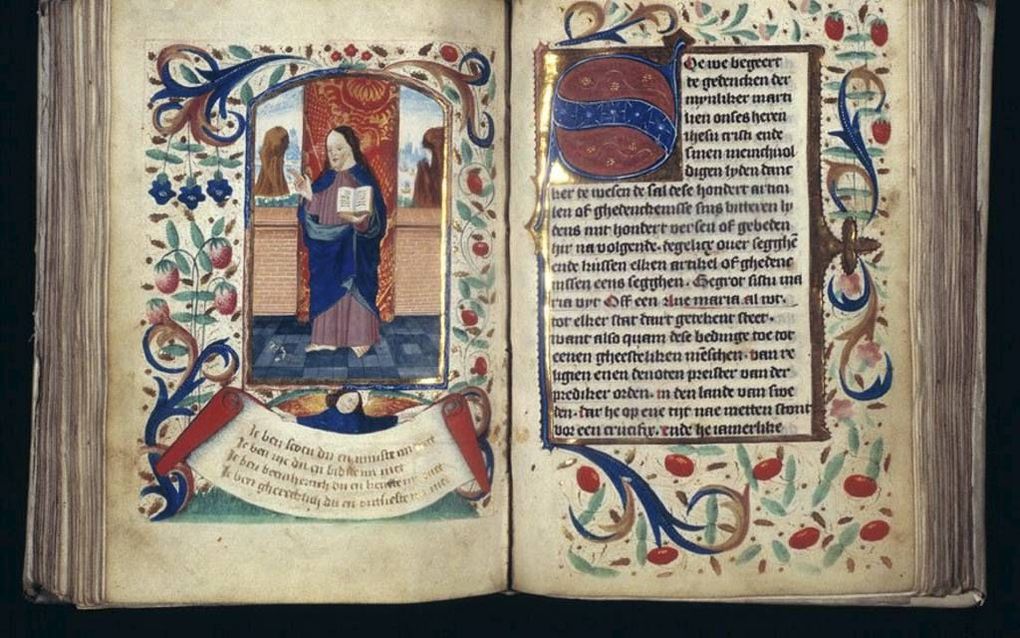 Ic ben scoen du en minste mi niet
Ic ben rije du en bidste mi niet
Ic ben bermhertich du en
Ic ben gherechtich du en ontsieste mi niet
Soe we begeert
te gedencken der
mynliker marti
lien onses heren
ihesu cristi ende
sinen menichuol
digen lyden danc
ber te wesen de sal dese hondert artiku
len of ghedenckenisse sins bitteren ly
dens mit hondert versen of gebeden
hir na volgende. degelix ouer segghē
ende tussen elken artikel of ghedenc
nissen eens segghen. Gegrot sistu ma
ria vyt Off een Aue maria al wt.
tot elker stat daert getekent steet.
want also quam dese bedinge toe tot
eenen gheesteliken mēschen. van re
ligien enen deuoten preister van der
prediker orden. in den lande van swe
den. dar he op ene tijt nae metten stont
vor een crucifix. ende he iamerlike